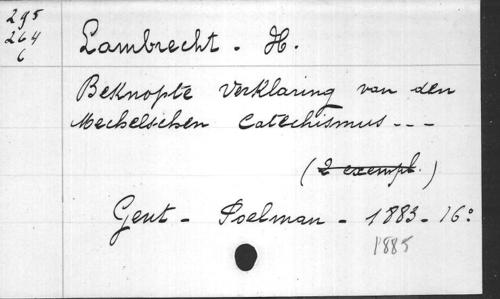 295
264
6
Lambrecht - H.
Beknopte Verklaring van den
Mechelschen Catechismus - - -
(2 exempl.)
Gent - Poelman - 1883 - 16°
1885